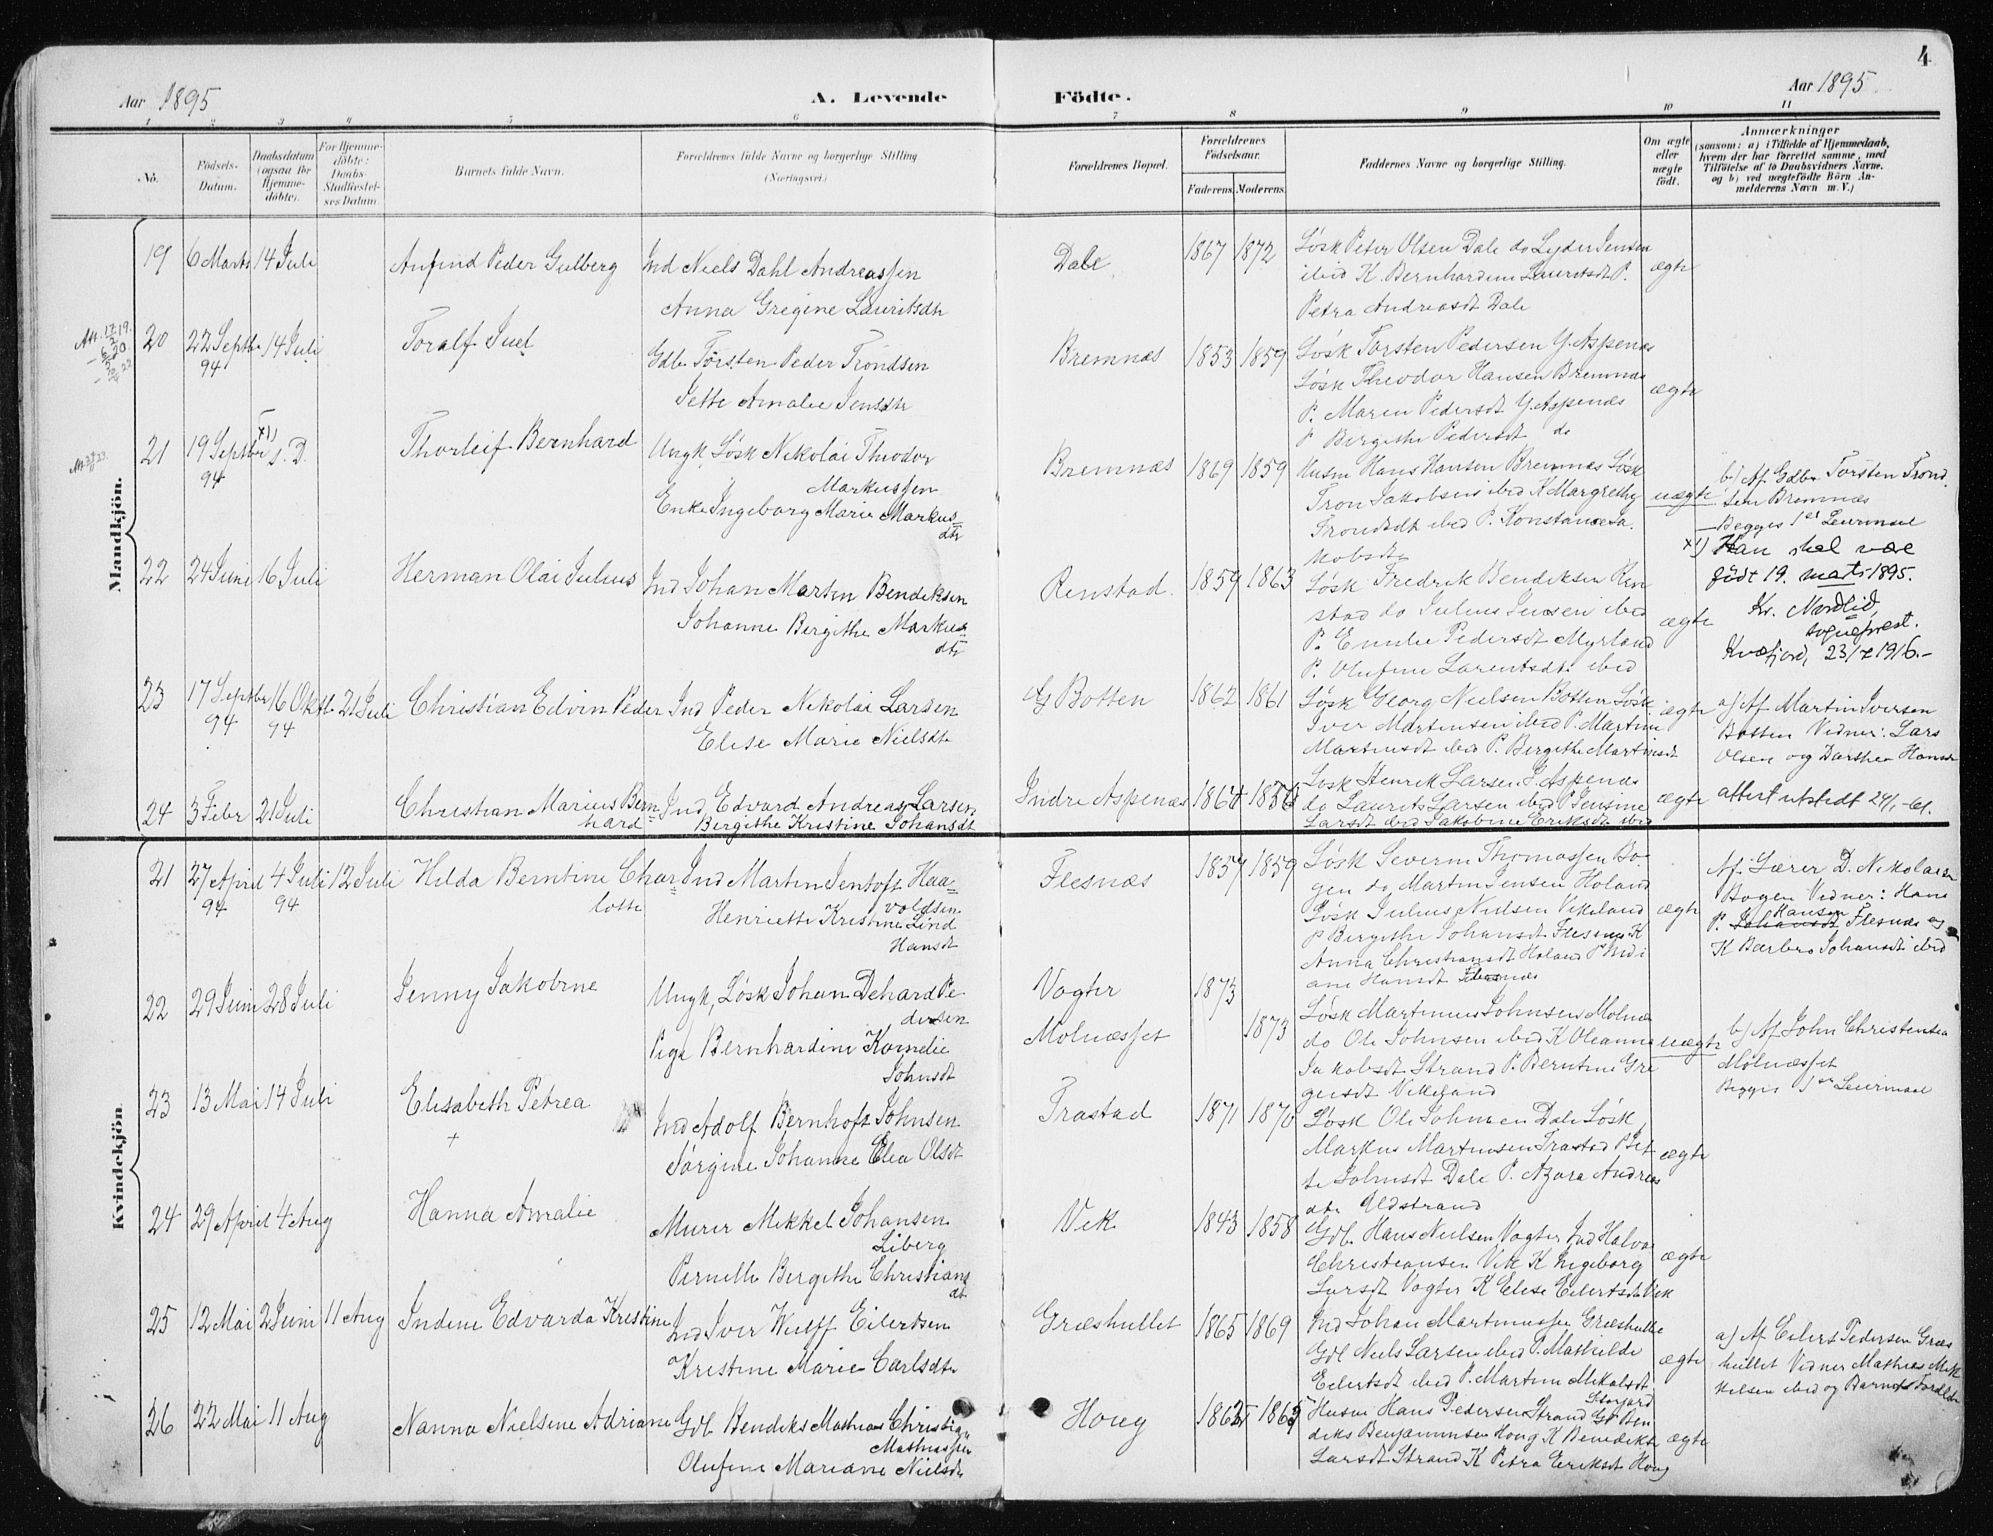 4
Aar 1895
A. Levende Födte.
Aar 1895
1 2 3 4 5 6 7 8 9 10 11
No.
Födsels-
Datum.
Daabsdatum
(ogsaa for
Hjemme-
döbte).
For Hjemme-
döbte:
Daabs-
Stadfæstel-
ses Datum.
Barnets fulde Navn.
Forældrenes fulde Navne og borgerlige Stilling.
(Næringsvei.)
Forældrenes Bopæl.
Forældrenes
Födselsaar.
Faderens. Moderens.
Faddernes Navne og borgerlige Stilling.
Om ægte
eller
uægte
födt.
Anmærkninger
(saasom: a) i Tilfælde af Hjemmedaab,
hvem der har forrettet samme, med
Tilföielse af to Daabsvidners Navne.
og b) ved uægtefödte Börn An-
melderens Navn m. V.)
Mandkjön.
19 6 Marts 14 Juli
Anfind Peder Gulberg
Ind Niels Dahl Andreassen
Anna Gregine Lauritsdtr
Dale
1867 1872
Løsk Peter Olsen Dale do Lyder Jensen
ibid K Bernhardine Lauritsdt P.
Petra Andreasdt Dale
ægte
20 22 Septbr 14 Juli
94
Toralf Juel
Gdb Torsten Peder Trondsen
Jette Amalie Jensdtr
Bremnæs
1853 1859
Løsk Torsten Pedersen Y. Aspenæs
Løsk Theodor Hansen Bremnæs
P. Maren Pedersdt Y. Aspenæs
P Birgithe Pedersdt do
ægte
21 19 Septbr x1) s. D.
94
Thorleif Bernhard
Ungk, Løsk Nikolai Theodor
Markussen
Enke Ingeborg Marie Markus-
dtr
Bremnæs
1869 1859
Husm Hans Hansen Bremnæs Løsk
Tron Jakobsen ibid K Margrethe
Trondsdt ibid P. Konstanse Ja-
kobsdtr
uægte
b) Af Gdbr Torsten Trond-
sen Bremnæs
Begges 1ste Leiermaal
x1) Han skal være
født 19. marts 1895.
Kr. Nordlid,
sogneprest.
Kvæfjord, 23/7 1916.-
22 24 Juni 16 Juli
Herman Olai Julius
Ind Johan Marten Bendiksen
Johanne Bergithe Markus-
dtr
Renstad.
1859 1863
Løsk Fredrik Bendiksen Ren-
stad do Julius Jensen ibid
P. Emilie Pedersdt Myrland
P. Olufine Larentsdt. ibid
ægte
23 17 Septbr 16 Oktb 21 Juli
94 94
Christian Edvin Peder
Ind Peder Nikolai Larsen
Elise Marie Nielsdt
G Botten
1862 1861
Løsk Georg Nielsen Botten Løsk
Iver Martensen ibid P. Martine
Martinsdt ibid P. Bergithe Martinsdt
ægte
a) Af Martin Iversen
Botten Vidner: Lars
Olsen og Dorthea Hansd
24 3 Febr 21 Juli
Christian Marius Bern-
hard
Ind Edvard Andreas Larsen
Bergithe Kristine Johansdt
Indre Aspenæs
Løsk Henrik Larsen I. Aspenæs
do Laurits Larsen ibid P Jensine
Larsdt ibid Jakobine Eriksdt ibid
ægte
attest utstedt 24/1-61.
Kvindekjön.
21 27 April 4 Juli 12 Juli
94 94
Hilda Berntine Char-
lotte
Ind Martin Jentoft Haa-
voldsen
Henriette Kristine Lind
Hansdt
Flesnæs
1857 1859
Løsk Severin Thomassen Bo-
gen do Martin Jensen Holand
Løsk Julius Nielsen Vikeland
P Bergithe Johansdt Flesnæs K
Anna Christiansdt Holand P Indi-
ane Hansdt Flesnæs
ægte
Af Lærer D. Nikolaisen
Bogen Vidner: Hans
P. Johansdt Hansen Flesnæs og
K Barbro Johansdt ibid
22 29 Juni 28 Juli
Jenny Jakobine
Ungk, Løsk Johan Dehard Pe-
dersen
Pige Bernhardine Kornelie
Johnsdt
Vogter
Molnæsset
1873
1873
Løsk Martinus Johnsen Molnæs
do Ole Johnsen ibid K Oleanna
Jakobsdt Strand P. Berntine Gre-
gersdt Vikeland
uægte
b) Af John Christensen
Molnæsset
Begges 1ste Leiermaal
23 13 Mai 14 Juli
Elisabeth Petrea
+
Ind Adolf Bernhoft Johnsen
Jørgine Johanne Elea Olsdt
Trastad
1871 1870
Løsk Ole Johnsen Dale Løsk
Markus Martinsen Trastad P Jet-
te Johnsdt Dale P. Azora Andreas
dtr Uldstrand
ægte
24 29 April 4 Aug
Hanna Amalie
Murer Mikkel Johansen
Liberg
Pernille Bergithe Christians
dt
Vik
1843 1858
Gdb. Hans Nielsen Vogter Ind Halvor
Christiansen Vik K Ingeborg
Larsdt Vogter K Elise Eilertsdt Vik
ægte
25 12 Mai 2 Juni 11 Aug
Indine Edvarda Kristine
Ind Iver Wulff Eilertsen
Kristine Marie Carlsdtr
Græshullet
1865 1869
Ind Johan Martinussen Græshullet
Gdb Niels Larsen ibid P. Mathilde
Eilertsdt ibid P. Martine Mikalsdt
ægte
a) Af Eilert Pedersen Græs-
hullet Vidner Mathias Mik-
kelsen ibid og Barnets Forældre
26 22 Mai 11 Aug
Nanna Nielsine Adriane
Gdb Bendiks Mathias Christian
Mathiassen
Olufine Mariane Nielsdtr
Houg
Storjord
Husm Hans Pedersen Strand Gb Ben-
diks Benjaminsen Houg K Benedikte
Larsdt Strand K Petra Eriksdt Houg
ægte